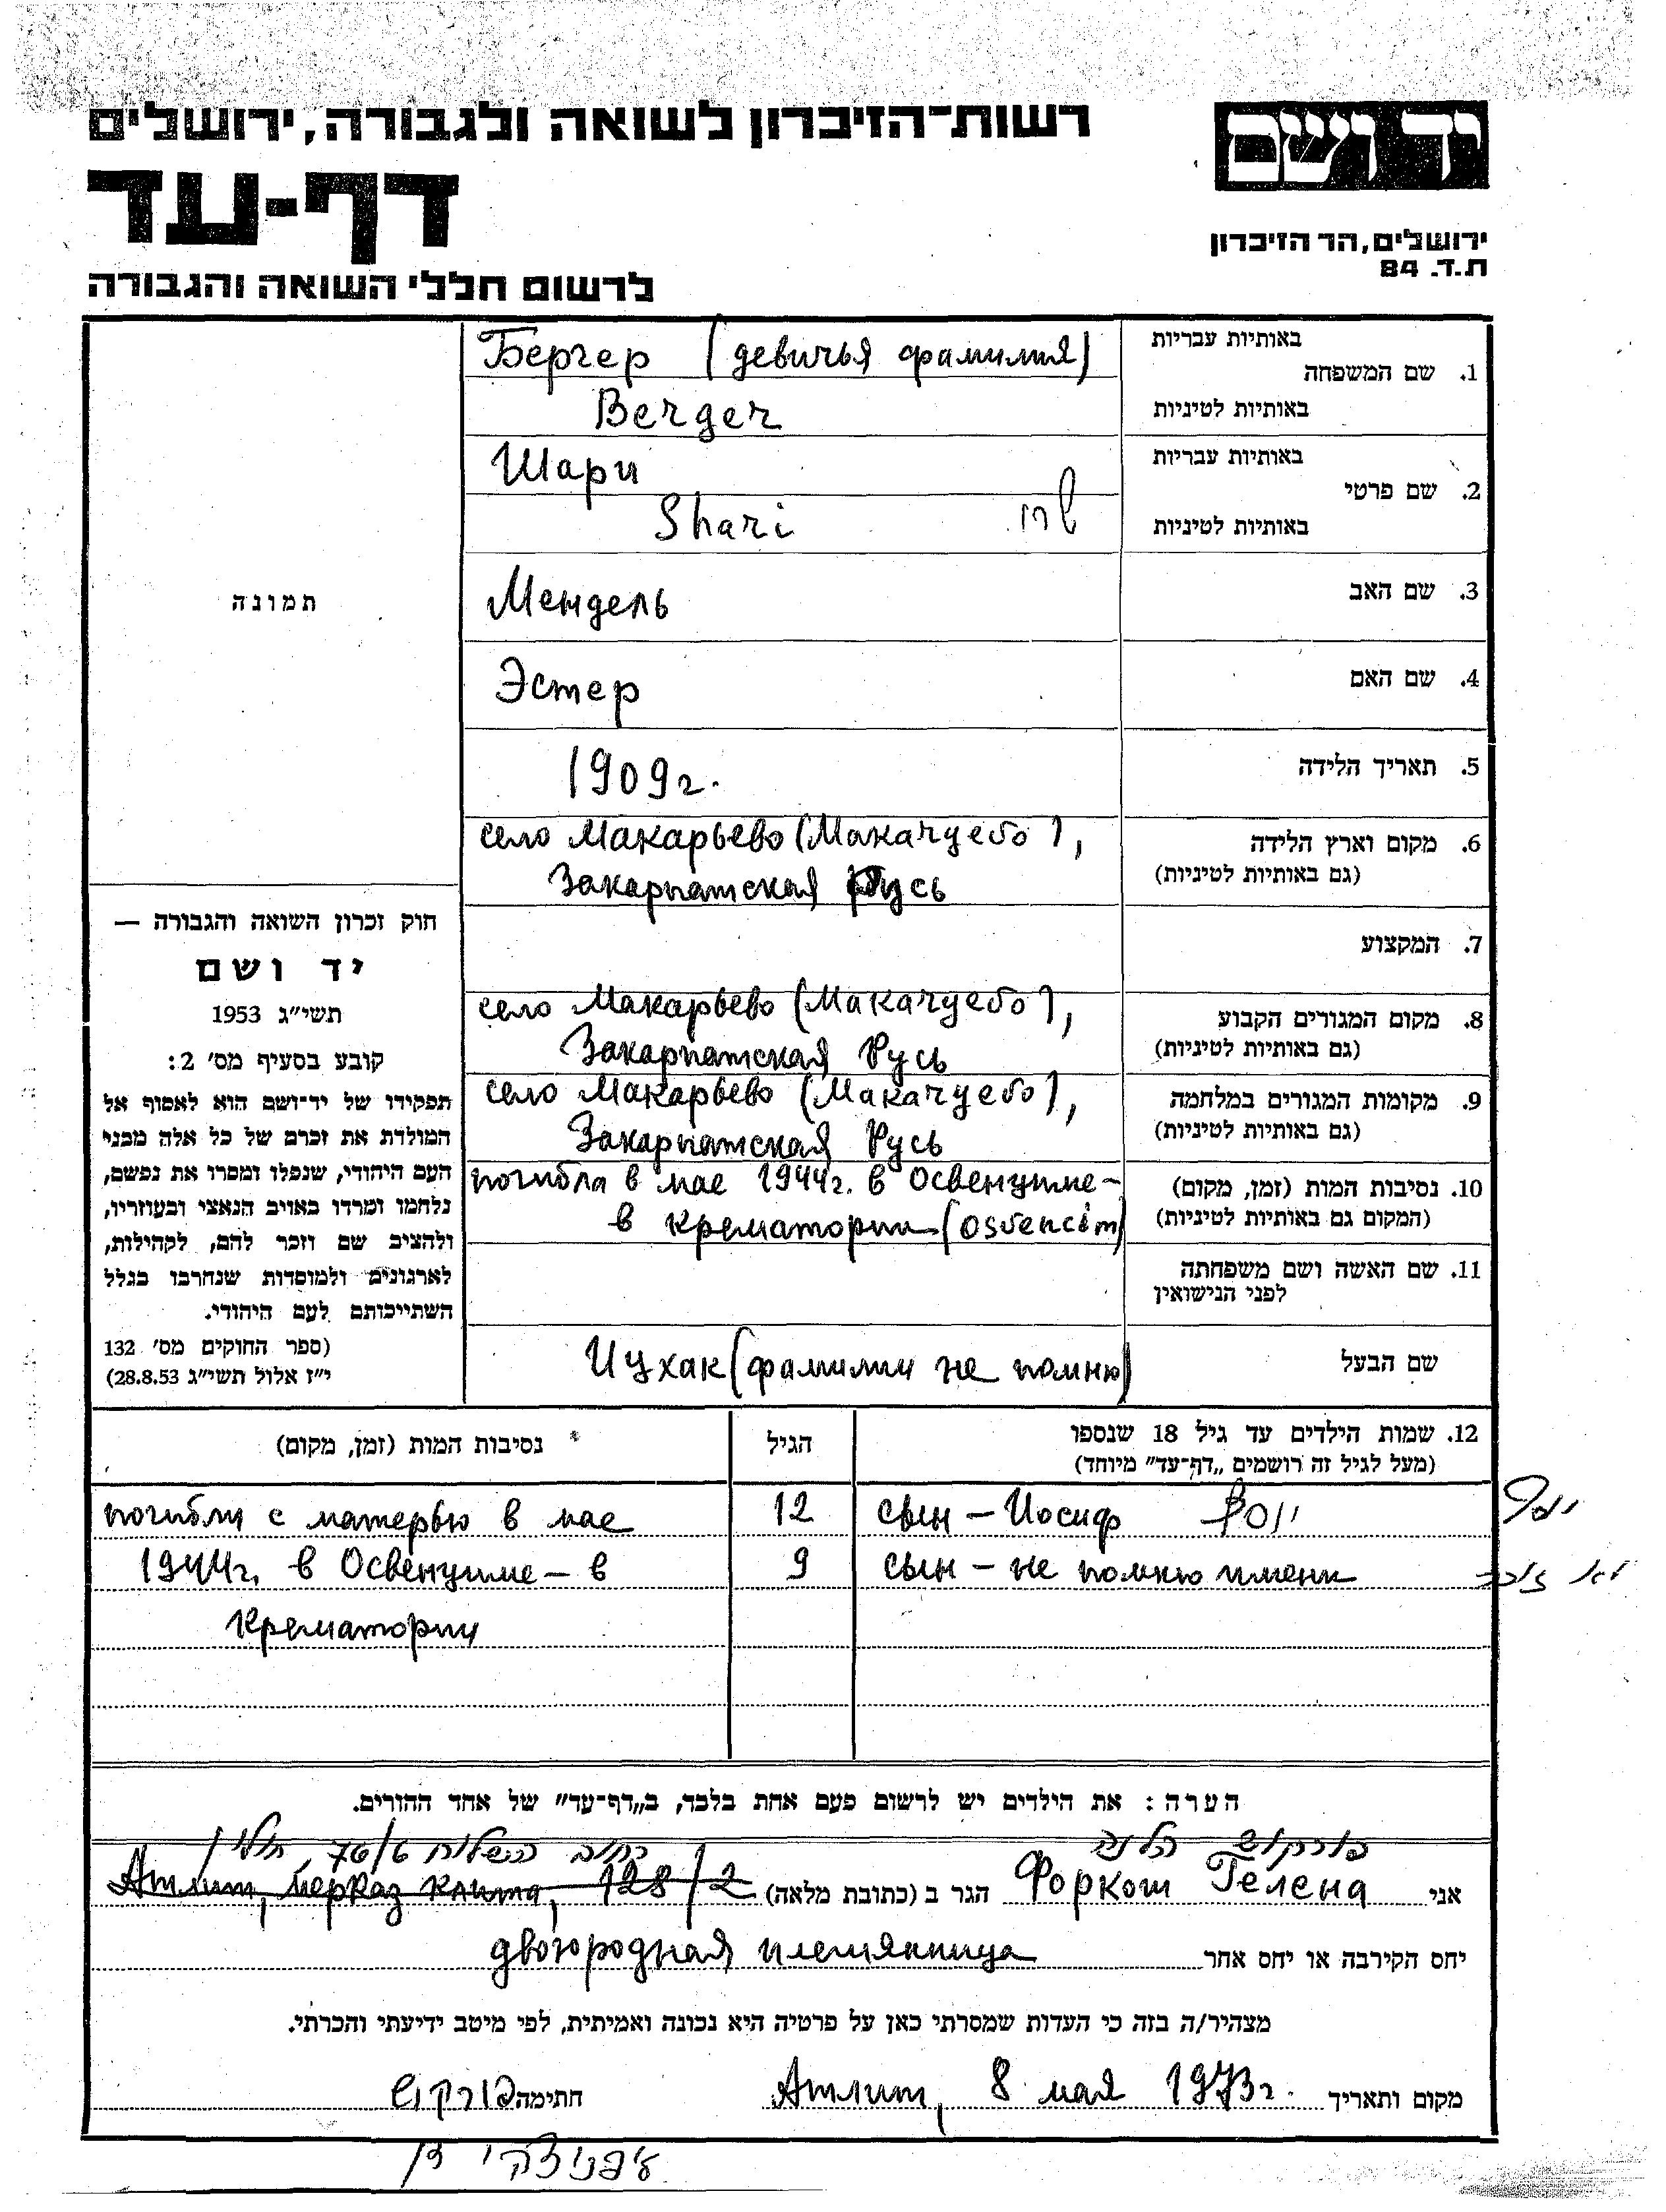 רשות־הזיכרון לשואה ולגבורה, ירושלים
יד ושם
דף-עד
ירושלים, הר הזיכרון
ת.ד. 84
לרשום חללי השואה והגבורה
באותיות עבריות
1. שם המשפחה
באותיות לטיניות
Бергер (девичья фамилия)
Berger
באותיות עבריות
2. שם פרטי
באותיות לטיניות
Шари
Shari שרי
3. שם האב
Мендель
4. שם האם
Эстер
5. תאריך הלידה
1909г.
6. מקום וארץ הלידה
(גם באותיות לטיניות)
село Макарьево (Макаrцево),
Закарпатская Русь
7. המקצוע
8. מקום המגורים הקבוע
(גם באותיות לטיניות)
село Макарьево (Макаrцево),
Закарпатская Русь
9. מקומות המגורים במלחמה
(גם באותיות לטיניות)
село Макарьево (Макаrцево),
Закарпатская Русь
10. נסיבות המות (זמן, מקום)
(המקום גם באותיות לטיניות)
погибла в мае 1944г. в Освенциме –
в крематории (osvencim)
11. שם האשה ושם משפחתה
לפני הנישואין
שם הבעל
Ицхак (фамилии не помню)
תמונה
חוק זכרון השואה והגבורה —
יד ושם
תשי״ג 1953
קובע בסעיף מס׳ 2:
תפקידו של יד־ושם הוא לאסוף אל
המולדת את זכרם של כל אלה מבני
העם היהודי, שנפלו ומסרו את נפשם,
נלחמו ומרדו באויב הנאצי ובעוזריו,
ולהציב שם וזכר להם, לקהילות,
לארגונים ולמוסדות שנחרבו בגלל
השתייכותם לעם היהודי.
(ספר החוקים מס׳ 132
י״ז אלול תשי״ג 28.8.53)
12. שמות הילדים עד גיל 18 שנספו
(מעל לגיל זה רושמים „דף־עד” מיוחד)
הגיל
נסיבות המות (זמן, מקום)
сын – Иосиф יוסף יוסף
12
погибли с матерью в мае
сын – не помню имени לא זוכר
9
1944г. в Освенциме – в
крематории
הערה: את הילדים יש לרשום פעם אחת בלבד, ב„דף־עד” של אחד ההורים.
פורקוש הלנה רחוב השילוח 76/6 חולון
אני Форкош Гелена הגר ב (כתובת מלאה) Атлит, Мерказ клита, 128/2
יחס הקירבה או יחס אחר двоюродная племянница
מצהיר/ה בזה כי העדות שמסרתי כאן על פרטיה היא נכונה ואמיתית, לפי מיטב ידיעתי והכרתי.
מקום ותאריך Атлит, 8 мая 1973г. חתימה פורקוש